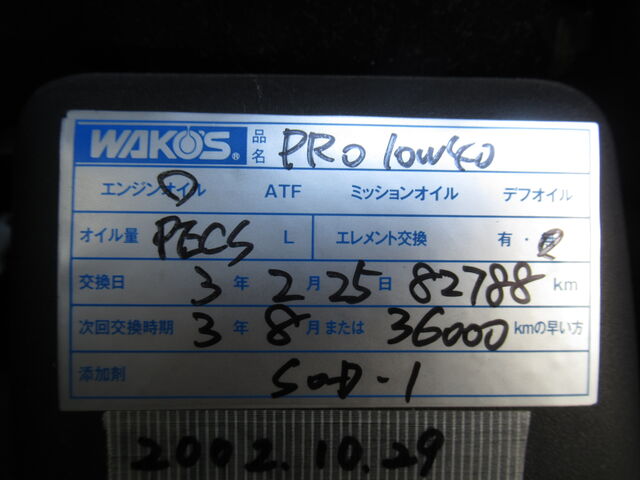 WAKO'S® 品名 PRO 10W40
エンジンオイル ATF ミッションオイル デフオイル
オイル量 PECS L エレメント交換 有・
交換日 3年 2月 25日 82788 km
次回交換時期 3年 8月または 36000 kmの早い方
添加剤 SOD-1
2002.10.29